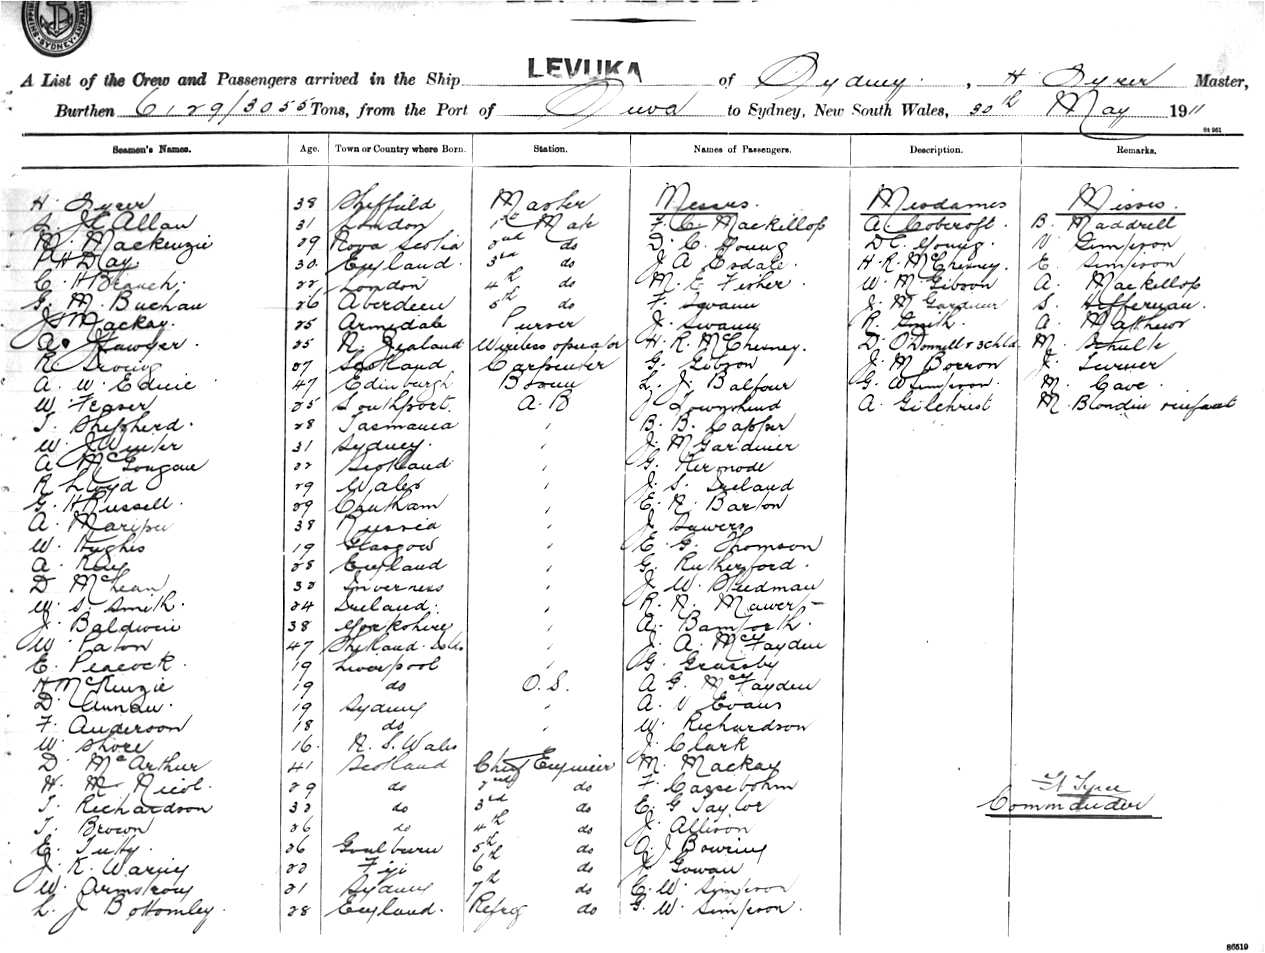 SYDNEY
LEVUKA
A List of the Crew and Passengers arrived in the Ship LEVUKA of Sydney, H. Syrer Master,
Burthen 6129/3055 Tons, from the Port of Suva to Sydney, New South Wales, 30th May 1911
84 961
Seamen's Names. Age. Town or Country where Born. Station. Names of Passengers. Description. Remarks.
H. Syrer 38 Sheffield Master Messrs. Mesdames Misses.
Allan 31 London 1st Mate F. C. Mackillop A. Cobcroft B. Maddrell
M. Mackenzie 29 Nova Scotia 2nd do D. C. Young D. C. Young. V. Simpson
P H Day 30 England. 3rd do J A Esdale. H. R. McChesney. E Simpson
C. H Branch. 22 London 4th do M. E. Fisher. W. M. Gibson A. Mackillop
G. M. Buchan 26 Aberdeen 5th do F. Swann J. M Gardiner S.
J S Mackay. 25 Armidale Purser J. Swann R. Smith. A. Mathews
A. Sawyer. 25 N. Zealand Wireless operator H. R. McChesney. D. O'Donnell & schld M. Schulte
R. 27 Scotland Carpenter G. Gibson J. M. Borron J. Turner
A. W. Edwie 47 Edinburgh Bosun L. J. Balfour G. W Simpson. M. Cave.
W. Feaser 25 Southport. A. B J. Townshend A. Gilchrist M. Blondin & infant
T. Shepherd. 28 Tasmania B. B. Capper
W. J Winter 31 Sydney. J. M Gardiner
A. McGougan 22 Scotland G. Kermode
R Lloyd 29 Wales J. S. Ireland
G. H Russell. 29 Chatham E. N. Barton
A. 38 Russia J. Sawers
W. Hughes 19 Glasgow E. G. Thomson
A. Kay 28 England G. Rutherford.
D McLean 32 Inverness J. W. Steedman
W. S. Smith. 24 Ireland. R. N. Mawer
J. Baldwin 38 Yorkshire A. Bamforth.
W. Paton 47 Shetland Isles J. A. McFayden
E. Peacock. 19 Liverpool G. Grassby
H McKenzie 19 do O. S. A G. McFayden
D. Annan. 19 Sydney A. V Evans
F. Anderson 18 do W. Richardson
W. Shore 16. N. S. Wales J. Clark
D. McArthur 41 Scotland Chief Engineer M. Mackay
H. M. Nicol. 29 do 2nd do F. Cassebohm
T. Richardson 32 do 3rd do E. G Taylor
T. Brown 26 do 4th do J. Allison
E. Tutty. 26 Goulburn 5th do A. J Bowring
J. K. Warring 22 Fiji 6th do J. Gowan
W. Armstrong 21 Sydney 7th do C. W. Simpson
L. J Bottomley. 28 England. Refrig do G. W. Simpson.
H Syrer
Commander
86519